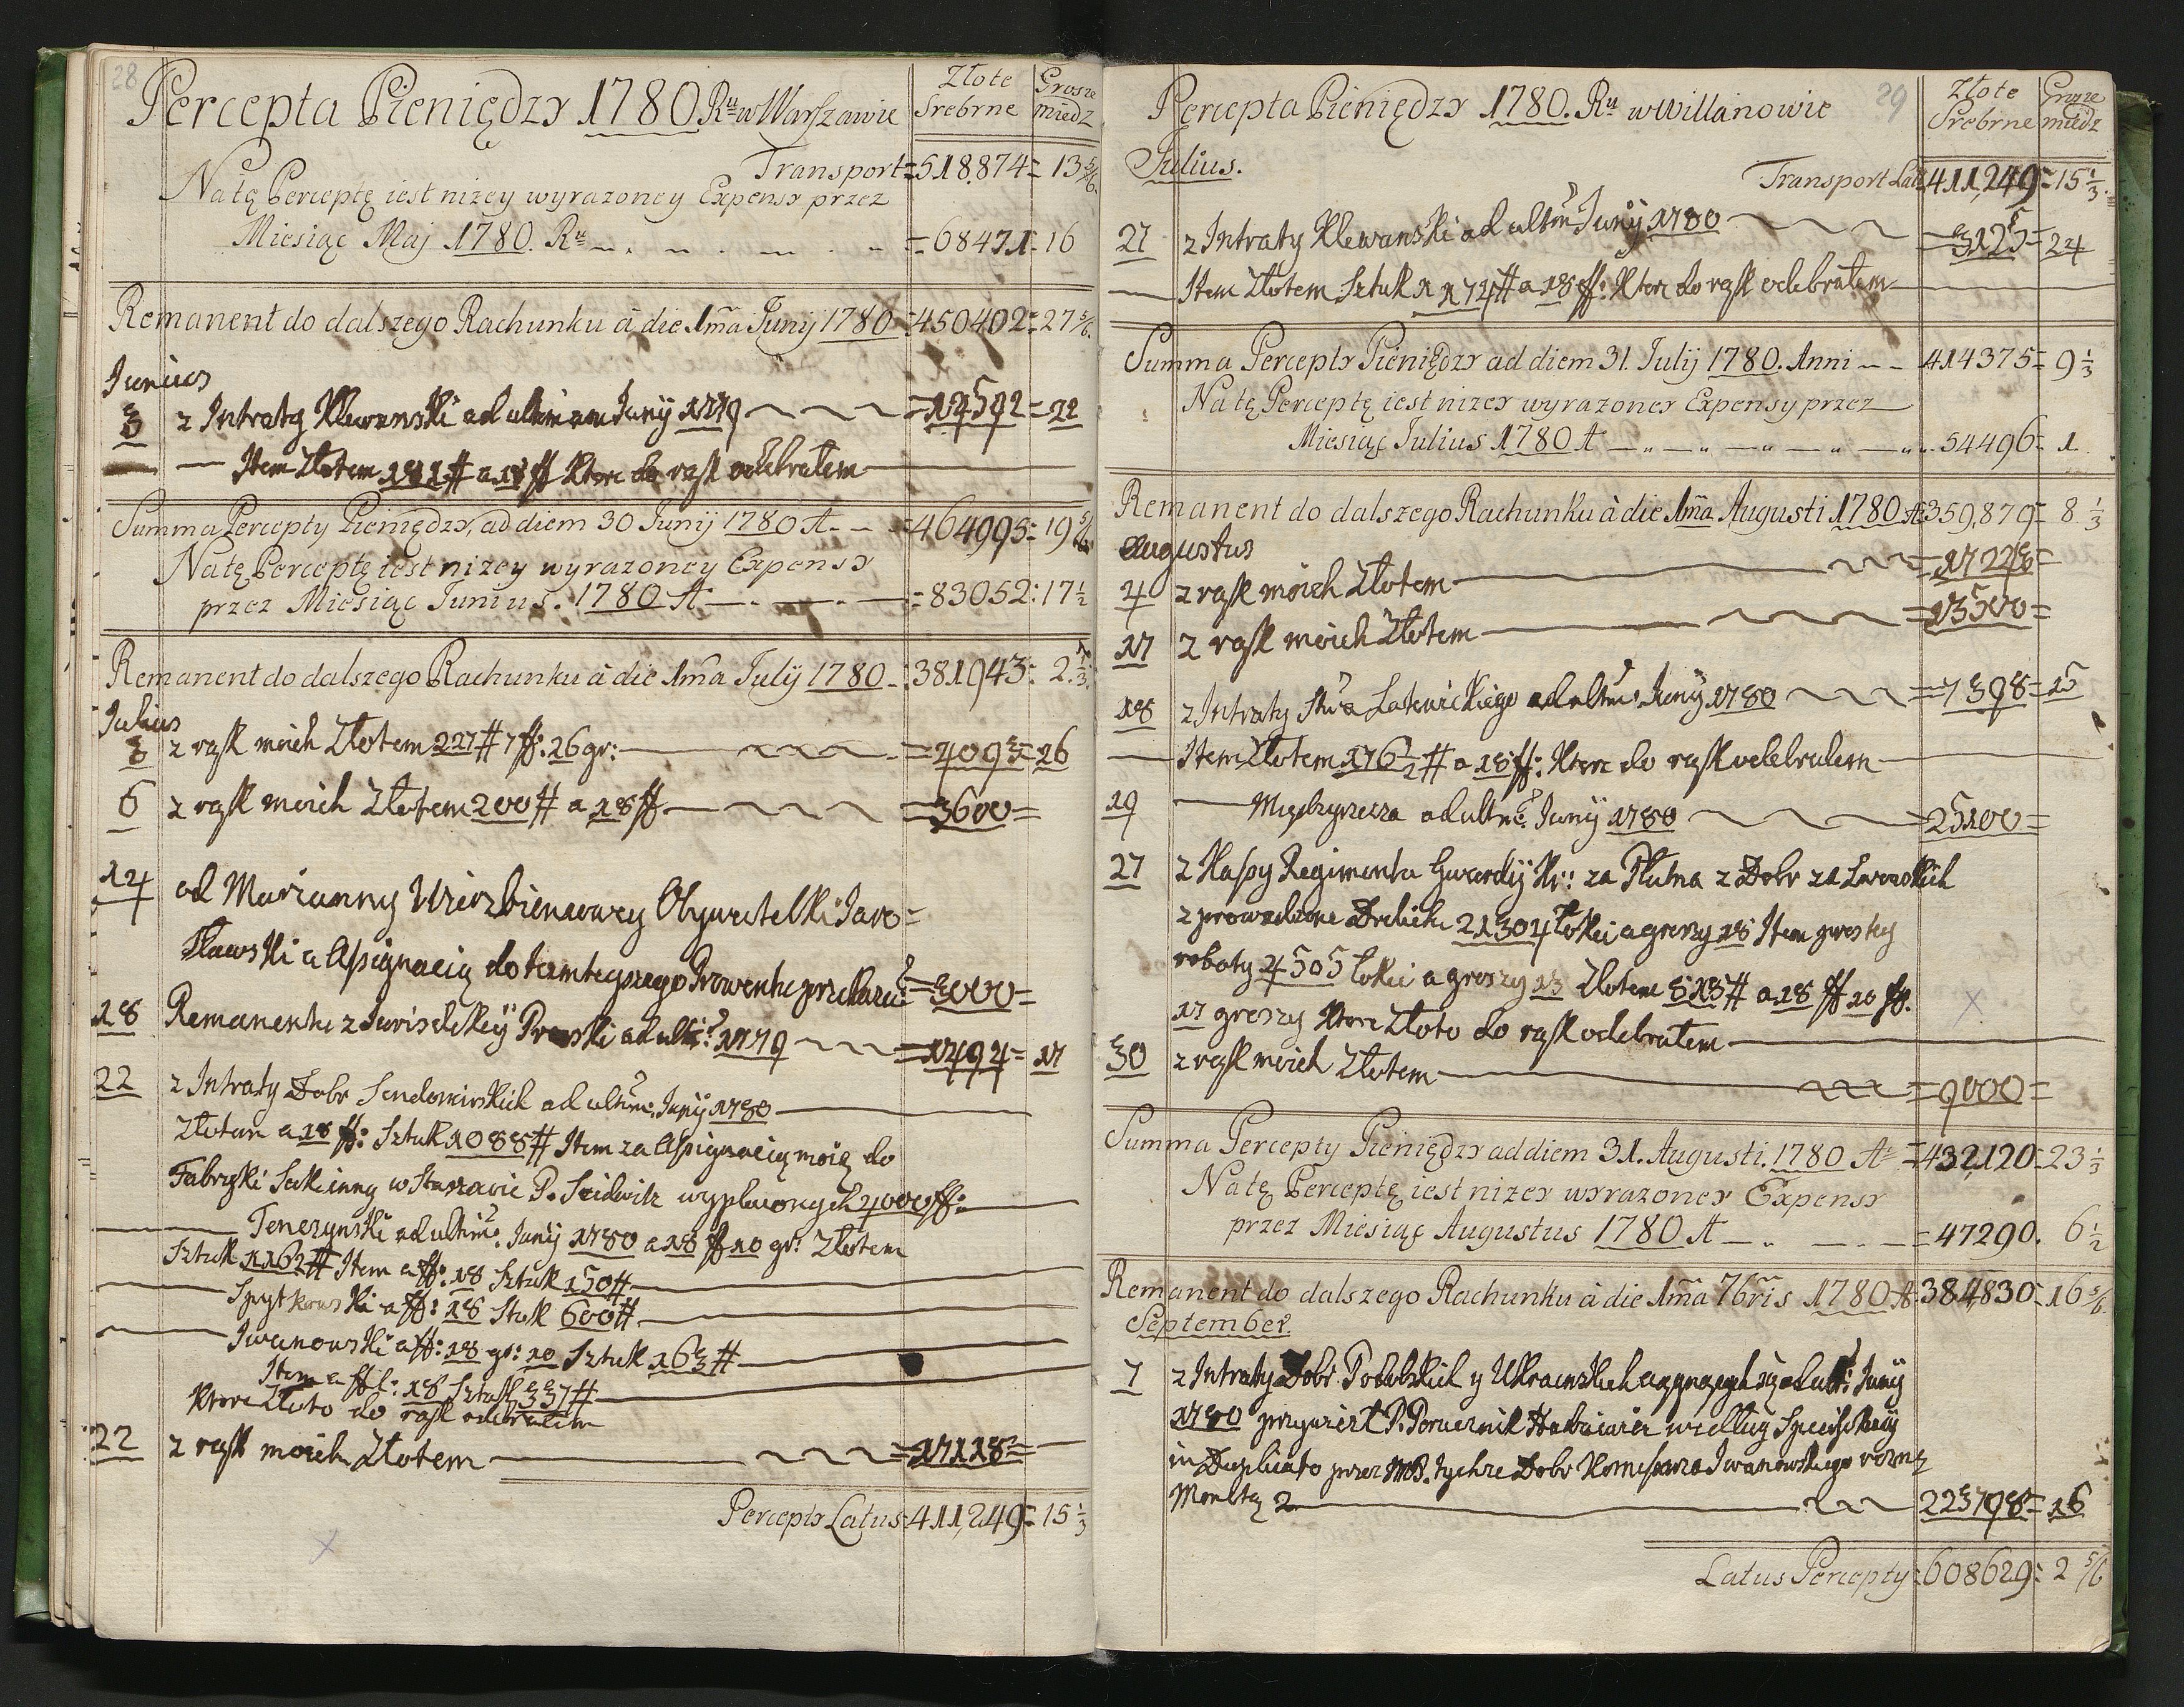 28
Percepta Pieniędzy 1780 Ru w Warszawie
Złote Srebrne
Grosze miedz
Transport = 518,874 = 13 5/6
Na tę Perceptę iest nizey wyrazoney Expensy przez
Miesiąc Maj 1780. Ru = 68471 = 16
Remanent do dalszego Rachunku à die 1ma Junij 1780 = 450402 = 27 5/6
Junius
3 z Intraty Klewanski ad ultimam Junij 1779 = 14592 = 22
Item Złotem 181 # a 18 ff Ktore do rąk odebrałem
Summa Percepty Pieniędzy, ad diem 30 Junij 1780 A = 464995 = 19 5/6
Na tę Perceptę iest nizey wyrazoney Expensy
przez Miesiąc Junius. 1780 A = 83052 : 17 1/2
Remanent do dalszego Rachunku à die 1ma Julij 1780 : 381943 : 2 1/3
Julius
3 z rąk moich Złotem 227 # 7 ff: 26 gr: = 4093 = 26
6 z rąk moich Złotem 200 # a 18 ff = 3600 =
14 od Marianny Wierzbieniowey Obywatelki Jaro=
sławski a Assignacią do tamteyszego Prowentu = 3000 =
18 Remanentu z Jurisdikcij Praski ad ult: 1779 = 1494 = 17
22 z Intraty Dobr Sendomirskich ad ultim: Junij 1780
Złotem a 18 ff: Sztuk 1088 # Item za Assignacią moią do
Fabryki Sukienny w Staszowie P. Seidwitz wypłaconych 4000 ff:
Tenczynski ad ultim: Junij 1780 a 18 ff 10 gr: Złotem
Sztuk 1162 # Item a ff: 18 Sztuk 150 #
Spytkowski a ff: 18 Stuk 600 #
Iwanowski a ff: 18 gr: 10 Sztuk 163 #
Item a ff: 18 Sztuk 337 #
Ktore Złoto do rąk odebrałem
22 z rąk moich Złotem = 17118 =
Percepty Latus : 411,249 = 15 1/3
29
Percepta Pieniędzy 1780. Ru w Willanowie
Złote Srebrne
Grosze miedz
Julius.
Transport Lat: 411,249 = 15 1/3
27 z Intraty Klewanski ad ultim Junij 1780 = 3125 = 24
Item Złotem Sztuk 1174 # a 18 ff: Ktore do rąk odebrałem
Summa Percepty Pieniędzy ad diem 31. Julij 1780. Anni 414375 = 9 1/3
Na tę Perceptę iest nizey wyrazoney Expensy przez
Miesiąc Julius 1780 A 54496 = 1.
Remanent do dalszego Rachunku à die 1ma Augusti 1780 A 359,879 = 8 1/3
Augustus
4 z rąk moich Złotem = 17248 =
17 z rąk moich Złotem = 13500 =
18 z Intraty Latowickiego ad ultim Junij 1780 = 7398 = 15
Item Złotem 176 1/2 # a 18 ff: Ktore do rąk odebrałem
19 Międzyrzecza ad ultim: Junij 1780 = 25100 =
27 z Kassy Regimentu Gwardij Kr: za Płutna z Dobr
zprowadzone Drelichu 21304 łokci a groszy 18 Item prostey
roboty 4505 łokci a groszy 13 Złotem 813 # a 18 ff 10 ff.
17 groszy Ktore Złoto do rąk odebrałem
30 z rąk moich Złotem = 9000 =
Summa Percepty Pieniędzy ad diem 31. Augusti. 1780 A = 432,120 = 23 1/3
Na tę Perceptę iest nizey wyrazoney Expensy
przez Miesiąc Augustus 1780 A = 47290. 6 1/2
Remanent do dalszego Rachunku à die 1ma 7bris 1780 A 384,830 = 16 5/6
September.
7 z Intraty Dobr Podolskich y Ukrainskich ad ult: Junij
1780 przywiezł P. Porucznik według Specifikacij
in Duplicato przez Tychze Dobr Komisarza Iwanowskiego rożną
Monetą 2 223798 = 16
Latus Percepty : 608629 = 2 5/6